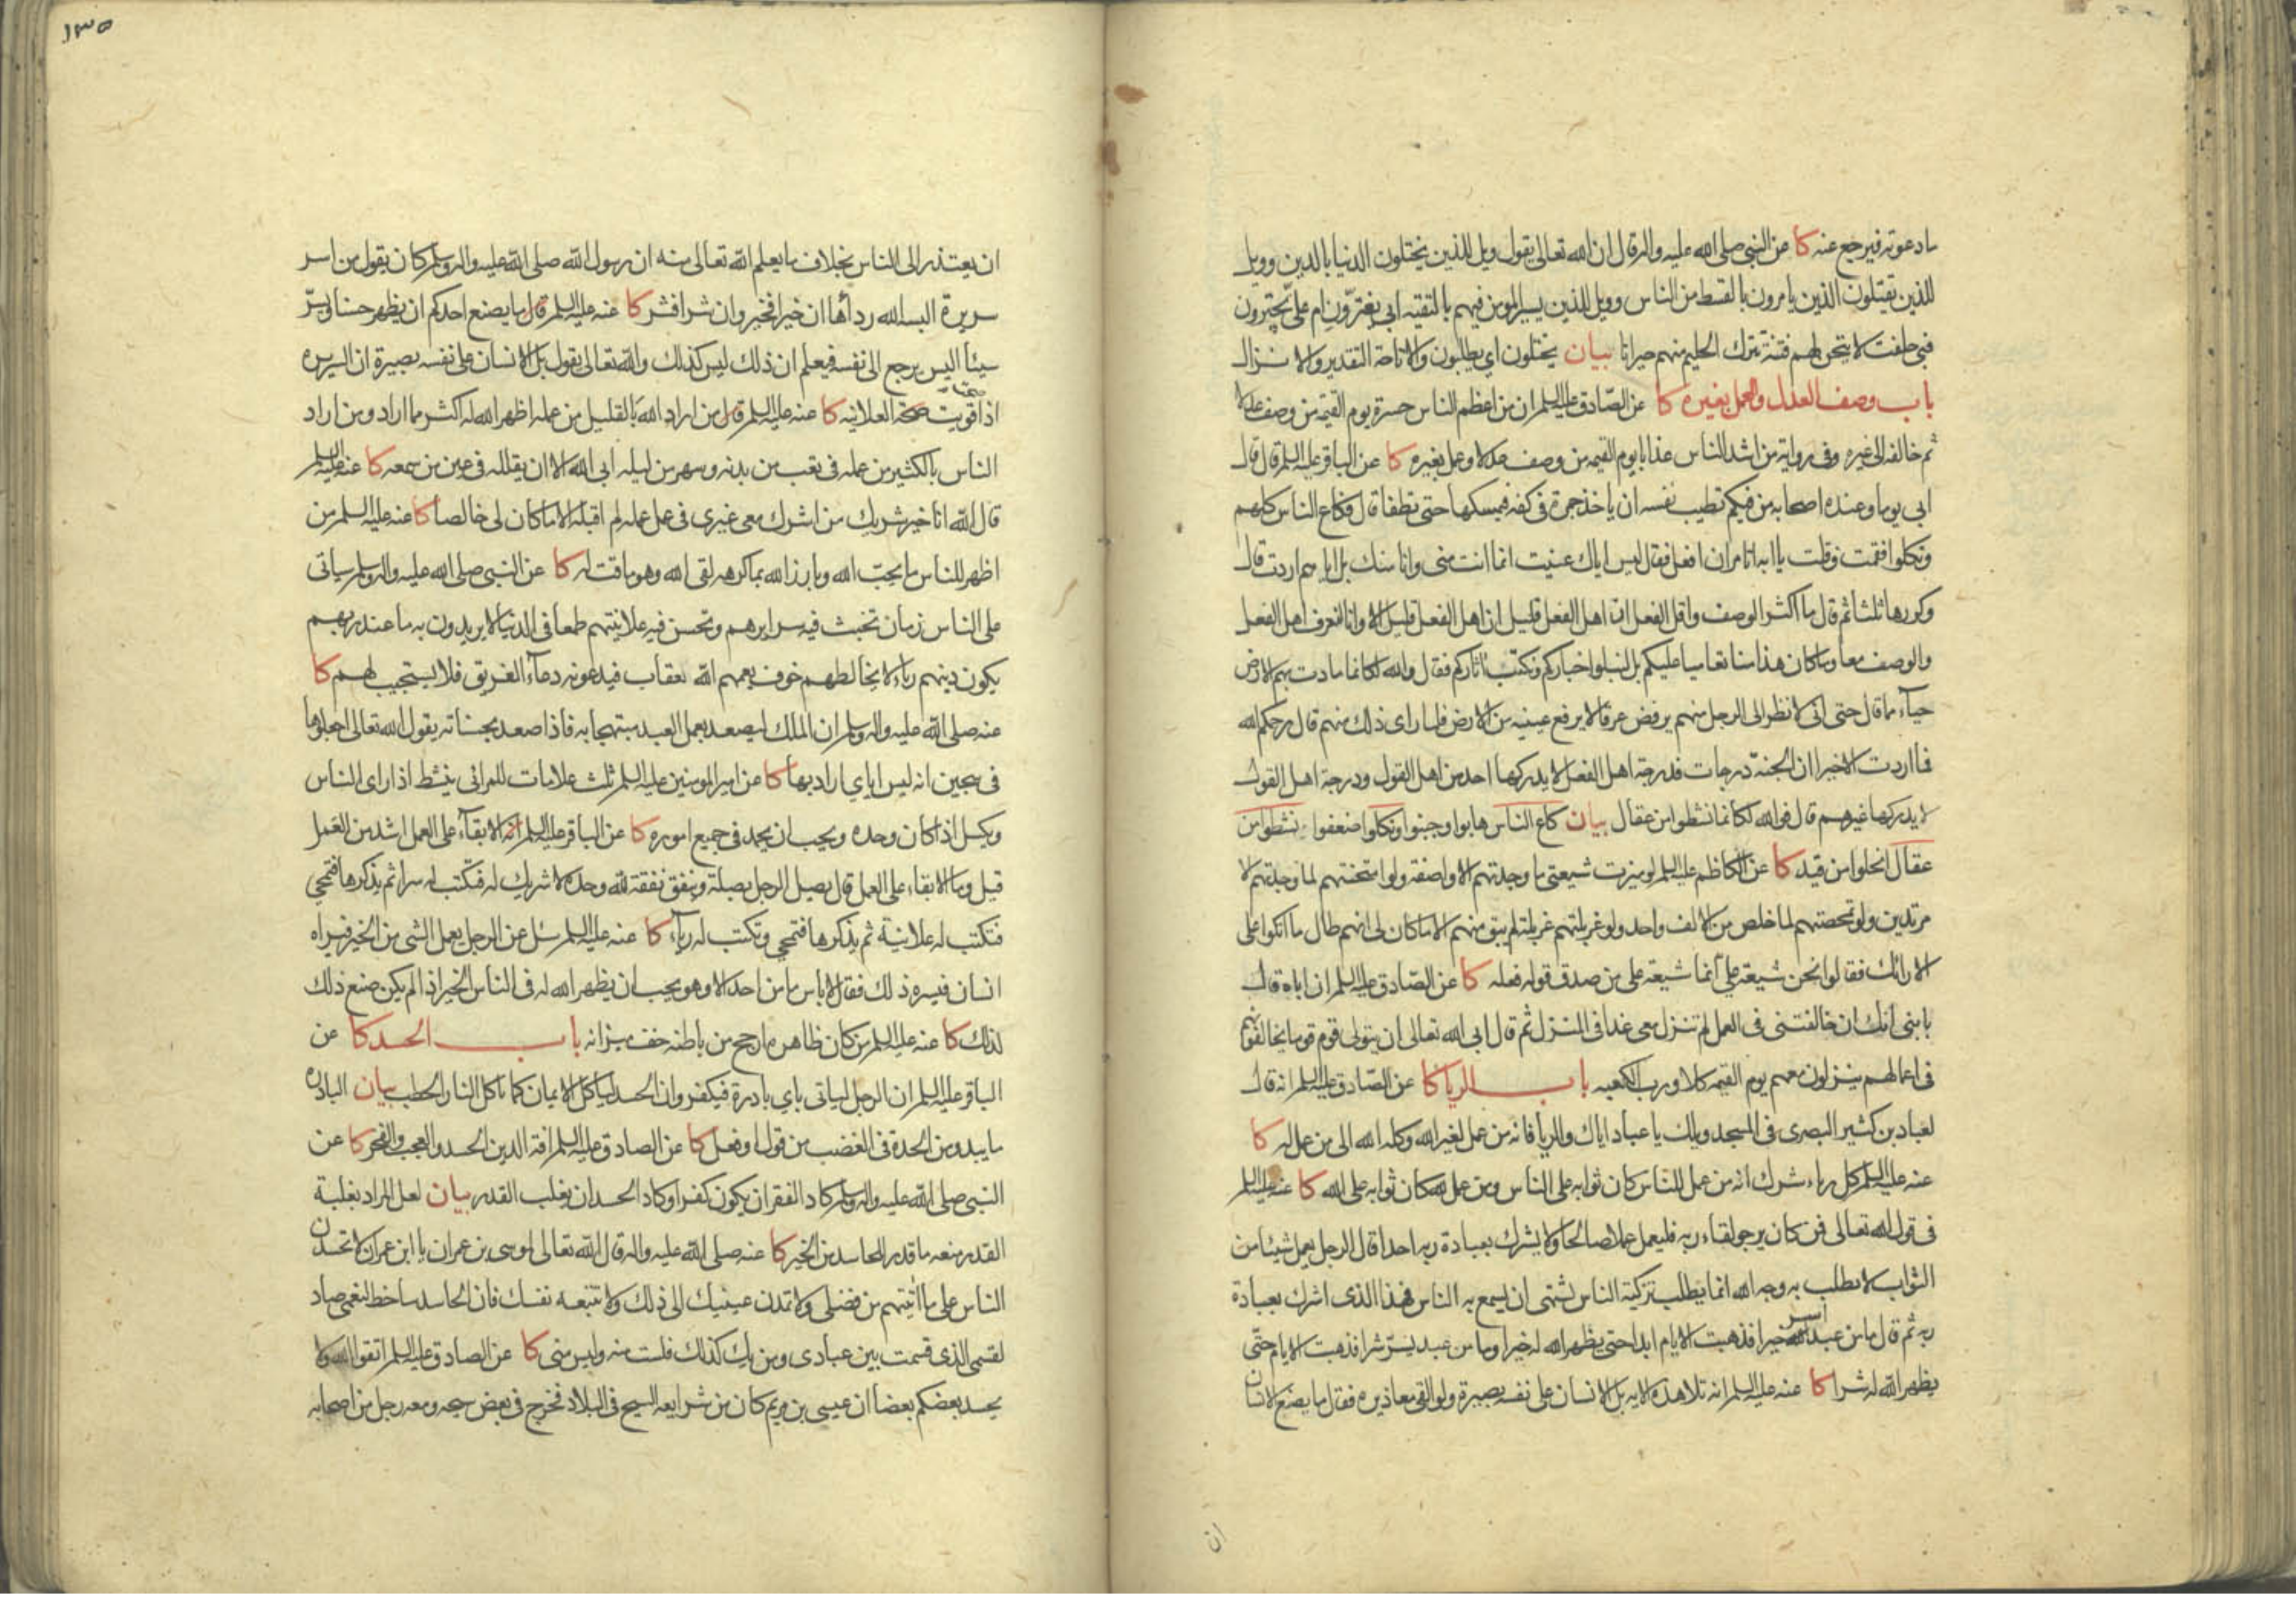 ما دعوته فيرجع عنه كا عن النبي صلى الله عليه واله قال ان الله تعالى يقول ويل للذين يختلون الدنيا بالدين وويل
للذين يقتلون الذين يامرون بالقسط من الناس وويل للذين يسير المومن فيهم بالتقيه ابي يغترّون ام علىّ يجترون
فبي حلفت لاتيحن لهم فتنة تترك الحليم منهم حيرانا بيان يختلون اي يطلبون والاتاحة التقدير والانزال
باب وصف العدل والعمل بغيره كا عن الصّادق عليه السلم ان من اعظم الناس حسرة يوم القيمه من وصف عدلا
ثم خالفه الى غيره وفي روايه من اشد الناس عذابا يوم القيمه من وصف عدلا وعمل بغيره كا عن الباقر عليه السلم قال قال
ابي يوما وعنده اصحابه من فيكم تطيب نفسه ان ياخذ جمرة في كفه فيمسكها حتى تطفا قال فكاع الناس كلهم
ونكلوا فقمت وقلت يا ابه اتامر ان افعل فقال ليس اياك عنيت انما انت مني وانا منك بل اياهم اردت قال
وكررها ثلثا ثم قال ما اكثر الوصف واقل الفعل ان اهل الفعل قليل ان اهل الفعل قليل الا وانا لنعرف اهل الفعل
والوصف معا وما كان هذا منا تعاميا عليكم بل لنبلوا اخباركم ونكتب اثاركم فقال والله لكانما مادت بهم الارض
حياء مما قال حتى اني لانظر الى الرجل منهم يرفض عرقا لا يرفع عينيه من الارض فلما راى ذلك منهم قال رحمكم الله
فما اردت الا خيرا ان الجنة درجات فدرجة اهل الفعل لا يدركها احد من اهل القول ودرجة اهل القول
لا يدركها غيرهم قال فوالله لكانما نشطوا من عقال بيان كاع الناس هابوا وجبنوا ونكلوا ضعفوا نشطوا من
عقال انحلوا من قيد كا عن الكاظم عليه السلم لو ميزت شيعتي ما وجدتهم الا واصفه ولو امتحنتهم لما وجدتهم الا
مرتدين ولو تمحصتهم لما خلص من الالف واحد ولو غربلتهم غربلة لم يبق منهم الا ما كان لي انهم طال ما اتكوا على
الارائك فقالوا نحن شيعة علي انما شيعة علي من صدق قوله فعله كا عن الصّادق عليه السلم ان اباه قال
يا بني انك ان خالفتني في العمل لم تنزل معي غدا في المنزل ثم قال ابى الله تعالى ان يتولى قوم قوما يخالفونهم
في اعمالهم ينزلون معهم يوم القيمه كلا ورب الكعبه باب الريا كا عن الصّادق عليه السلم انه قال
لعباد بن كثير البصرى في المسجد ويلك يا عباد اياك والريا فانه من عمل لغير الله وكله الله الى من عمل له كا
عنه عليه السلم كل رياء شرك انه من عمل للناس كان ثوابه على الناس ومن عمل لله كان ثوابه على الله كا عنه عليه السلم
في قول الله تعالى فمن كان يرجو لقاء ربه فليعمل عملا صالحا ولا يشرك بعبادة ربه احدا قال الرجل يعمل شيئا من
الثواب لا يطلب به وجه الله انما يطلب تزكية الناس يشتهي ان يسمع به الناس فهذا الذى اشرك بعبادة
ربه ثم قال ما من عبد اسر خيرا فذهبت الايام ابدا حتى يظهر الله له خيرا وما من عبد يسرّ شرا فذهبت الايام حتّى
يظهر الله له شرا كا عنه عليه السلم انه تلا هذه الايه بل الانسان على نفسه بصيرة ولو القى معاذيره فقال ما يصنع الانسان
ان
١٣٥
ان يعتذر الى الناس بخلاف ما يعلم الله تعالى منه ان رسول الله صلى الله عليه واله وسلم كان يقول من اسر
سريرة البسه الله رداها ان خيرا فخير وان شرا فشر كا عنه عليه السلم قال ما يصنع احدكم ان يظهر حسنا ويسرّ
سيئا اليس يرجع الى نفسه فيعلم ان ذلك ليس كذلك والله تعالى يقول بل الانسان على نفسه بصيرة ان السريره
اذا قويت صحة العلانيه كا عنه عليه السلم قال من اراد الله بالقليل من عمله اظهر الله له اكثر مما اراد ومن اراد
الناس بالكثير من عمله في تعب من بدنه وسهر من ليله ابى الله الا ان يقلله في عين من سمعه كا عنه عليه السلم
قال الله انا خير شريك من اشرك معي غيرى في عمل عمله لم اقبله الا ما كان لى خالصا كا عنه عليه السلم من
اظهر للناس ما يحبّ الله وبارز الله بما كرهه لقى الله وهو ماقت له كا عن النبي صلى الله عليه واله وسلم سياتى
على الناس زمان تخبث فيه سرايرهم وتحسن فيه علانيتهم طمعا في الدنيا لا يريدون به ما عند ربهم
يكون دينهم رياء لا يخالطهم خوف يعمهم الله بعقاب فيدعونه دعاء الغريق فلا يستجيب لهم كا
عنه صلى الله عليه واله وسلم ان الملك ليصعد بعمل العبد مبتهجا به فاذا صعد بحسناته يقول الله تعالى اجعلوها
في سجين انه ليس اياي اراد بها كا عن امير المومنين عليه السلم ثلث علامات للمرائى ينشط اذا راى الناس
ويكسل اذا كان وحده ويحب ان يحمد في جميع اموره كا عن الباقر عليه السلم انه الابقاء على العمل اشد من العمل
قيل وما الابقاء على العمل قال يصل الرجل بصلة وينفق نفقة لله وحده لا شريك له فتكتب له سرا ثم يذكرها فتمحي
فتكتب له علانية ثم يذكرها فتمحي وتكتب له رياء كا عنه عليه السلم سئل عن الرجل يعمل الشى من الخير فيراه
انسان فيسره ذلك فقال لا باس ما من احد الا وهو يحب ان يظهر الله له في الناس الخير اذا لم يكن صنع ذلك
لذلك كا عنه عليه السلم من كان ظاهره ارجح من باطنه خف ميزانه باب الحسد كا عن
الباقر عليه السلم ان الرجل لياتى باي بادرة فيكفر وان الحسد لياكل الايمان كما تاكل النار الحطب بيان البادره
ما يبدو من الحدة في الغضب من قول او فعل كا عن الصادق عليه السلم افة الدين الحسد والعجب والفخر كا عن
النبي صلى الله عليه واله وسلم كاد الفقر ان يكون كفرا وكاد الحسد ان يغلب القدر بيان لعل المراد بغلبة
القدر منعه ما قدر للحاسد من الخير كا عنه صلى الله عليه واله قال الله تعالى لموسى بن عمران يا ابن عمران لا تحسدن
الناس على ما اتيتهم من فضلى ولا تمدن عينيك الى ذلك ولا تتبعه نفسك فان الحاسد ساخط لنعمى صاد
لقسمى الذى قسمت بين عبادى ومن يك كذلك فلست منه وليس منى كا عن الصادق عليه السلم اتقوا الله ولا
يحسد بعضكم بعضا ان عيسى بن مريم كان من شرايعه السيح في البلاد فخرج في بعض سيحه ومعه رجل من اصحابه